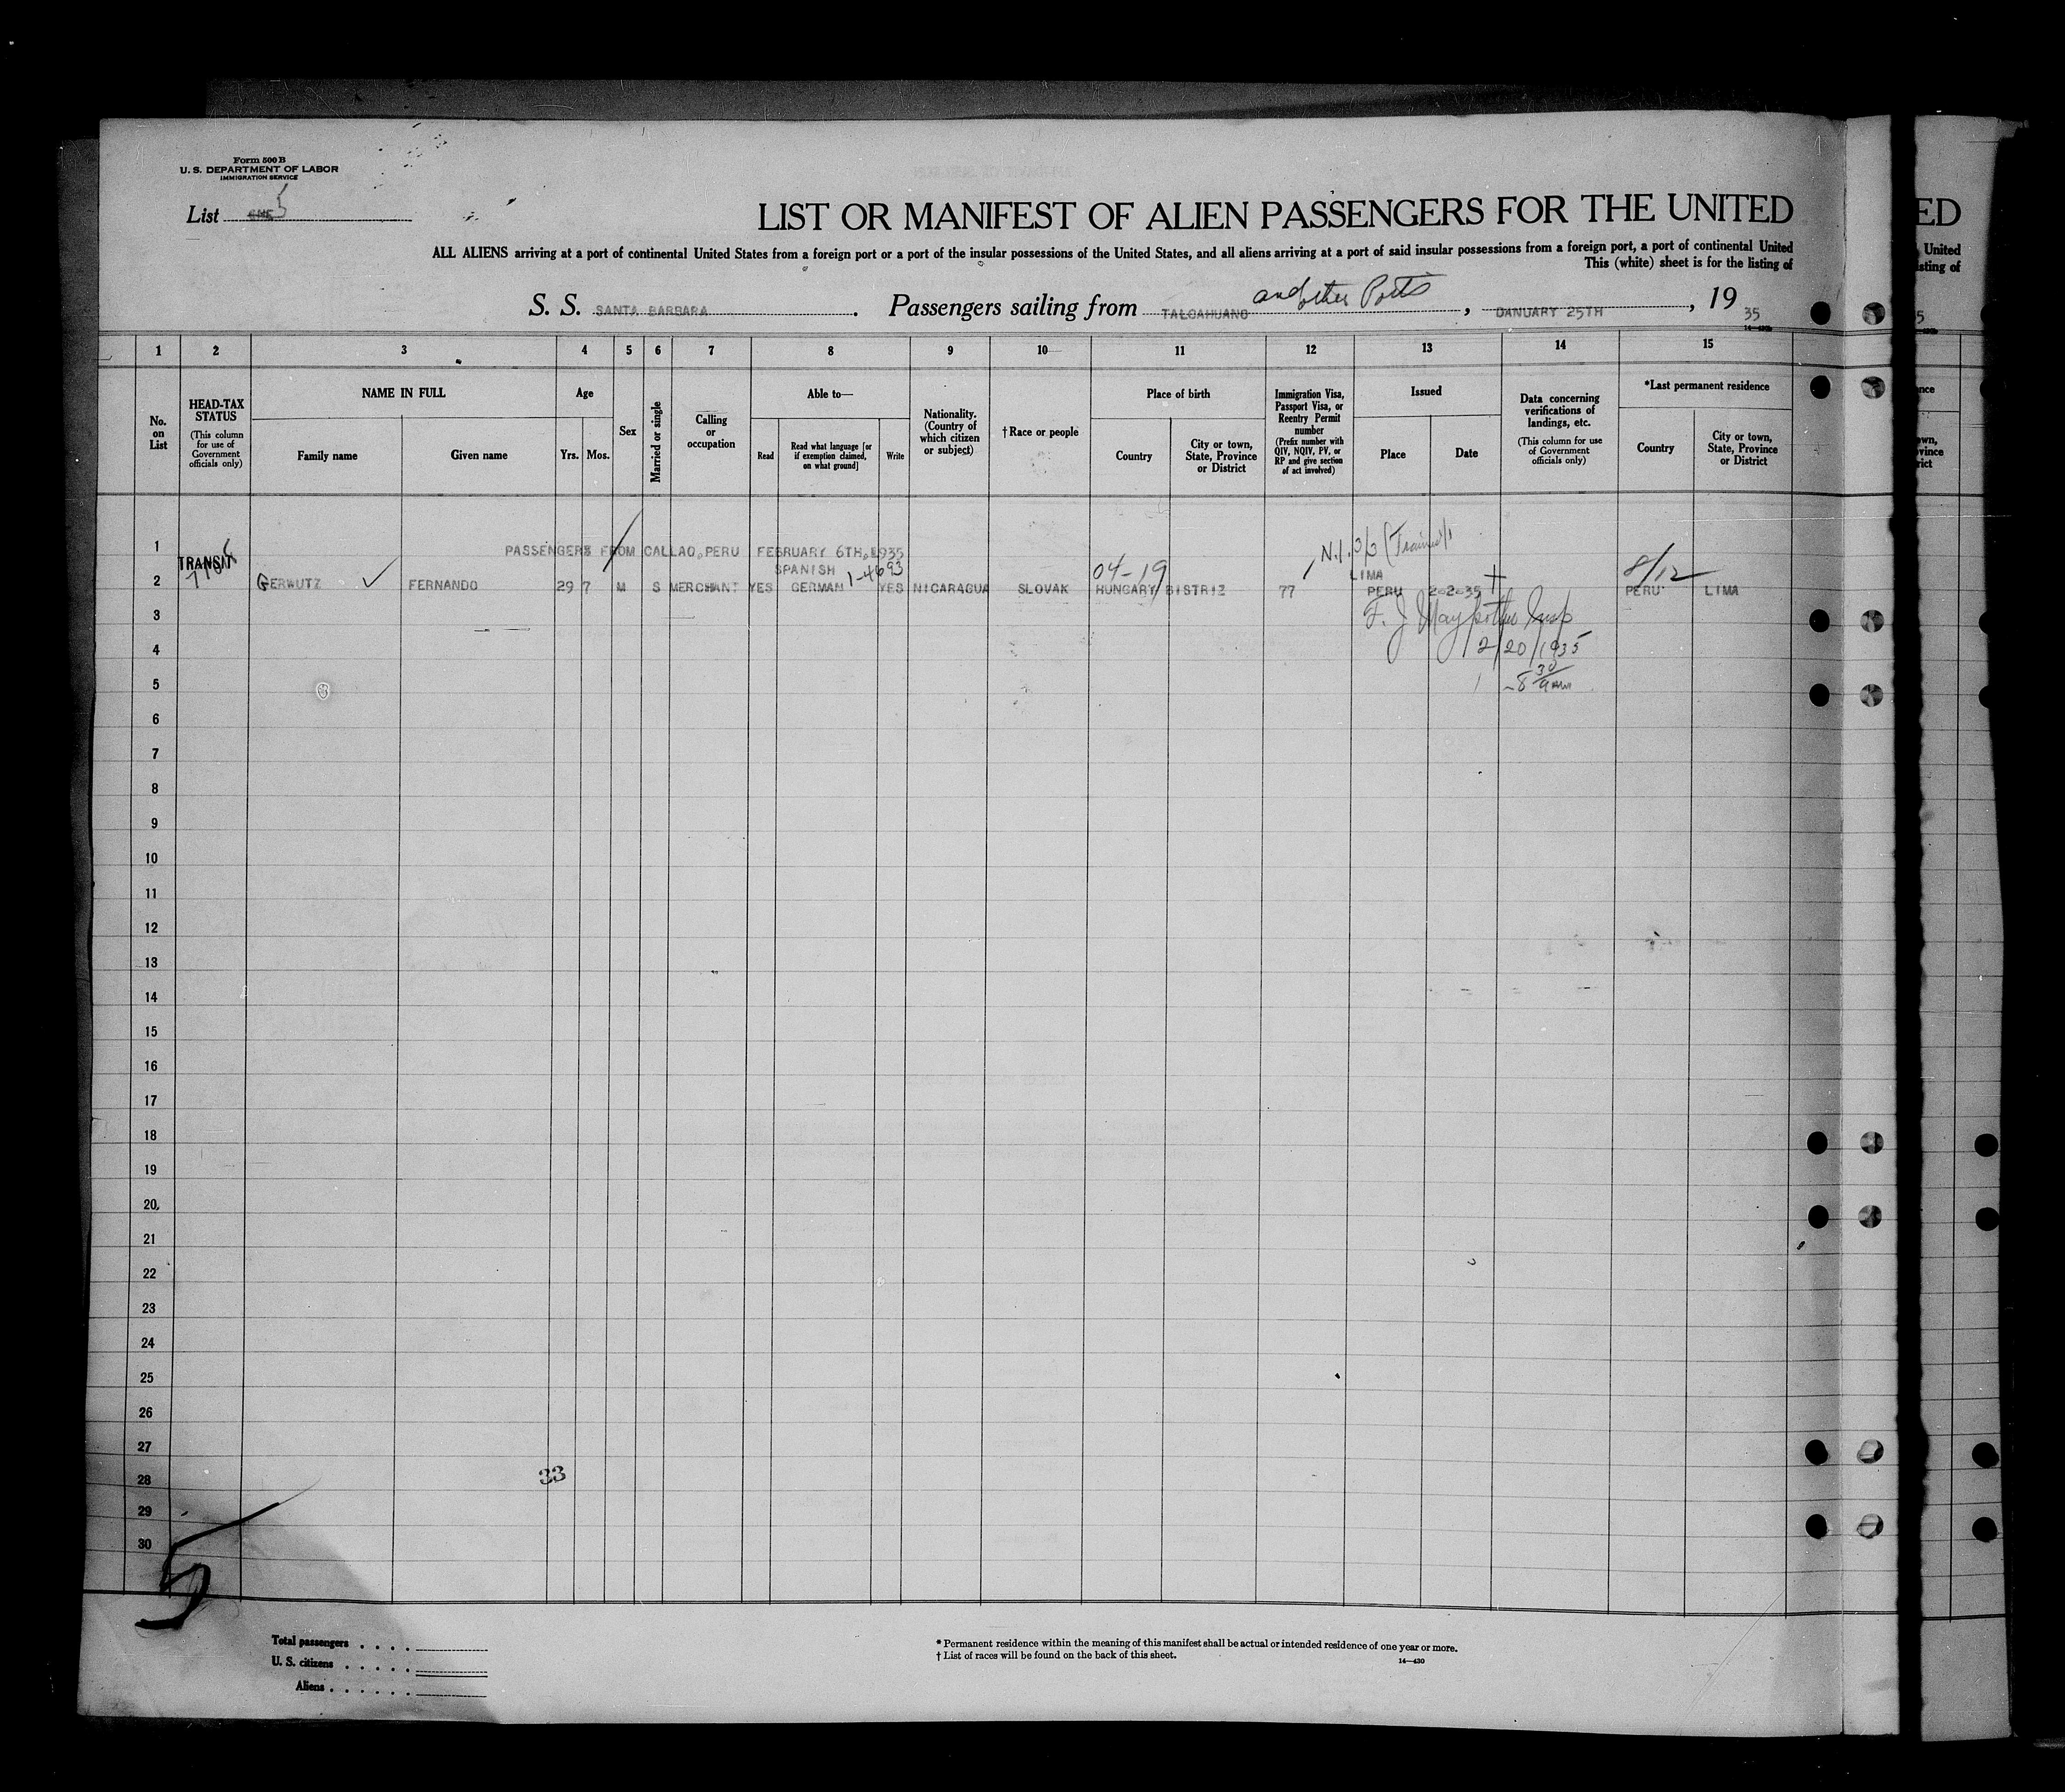 Form 500 B
U. S. DEPARTMENT OF LABOR
IMMIGRATION SERVICE
List 5
LIST OR MANIFEST OF ALIEN PASSENGERS FOR THE UNITED
ALL ALIENS arriving at a port of continental United States from a foreign port or a port of the insular possessions of the United States, and all aliens arriving at a port of said insular possessions from a foreign port, a port of continental United
This (white) sheet is for the listing of
S. S. SANTA BARBARA. Passengers sailing from TALCAHUANO and other Ports, DANUARY 25TH, 1935
14—430
1 2 3 4 5 6 7 8 9 10 11 12 13 14 15
No. on List
HEAD-TAX STATUS (This column for use of Government officials only)
NAME IN FULL
Family name
Given name
Age
Yrs. Mos.
Sex
Married or single
Calling or occupation
Able to—
Read
Read what language [or if exemption claimed, on what ground]
Write
Nationality. (Country of which citizen or subject)
†Race or people
Place of birth
Country
City or town, State, Province or District
Immigration Visa, Passport Visa, or Reentry Permit number (Prefix number with QIV, NQIV, PV, or RP and give section of act involved)
Issued
Place
Date
Data concerning verifications of landings, etc. (This column for use of Government officials only)
*Last permanent residence
Country
City or town, State, Province or District
1
PASSENGERS FROM CALLAO, PERU FEBRUARY 6TH, 1935
TRANSIT
SPANISH 04-19 LIMA 8/12
2 GERWUTZ FERNANDO 29 7 M S MERCHANT YES GERMAN YES NICARAGUA SLOVAK HUNGARY BISTRIZ 77 PERU 2-2-35 PERU LIMA
3
4 2/20/1935
5
6
7
8
9
10
11
12
13
14
15
16
17
18
19
20
21
22
23
24
25
26
27
28 33
29
30
5
Total passengers
U. S. citizens
Aliens
* Permanent residence within the meaning of this manifest shall be actual or intended residence of one year or more.
† List of races will be found on the back of this sheet.
14—430
ED
United